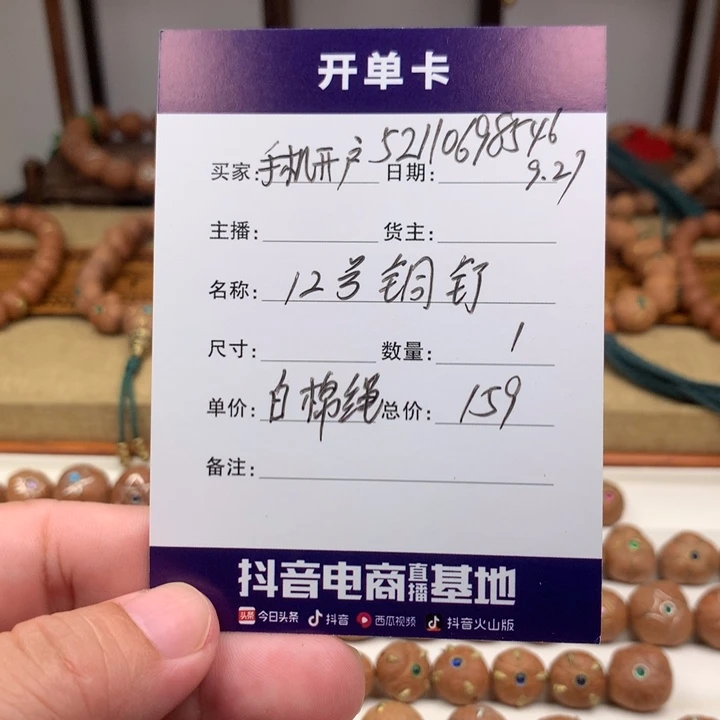 开单卡
买家：手机开户52110698546 日期：9.27
主播： 货主：
名称：12号铜钉
尺寸： 数量：1
单价：白棉绳 总价：159
备注：
抖音电商直播基地
头条 今日头条 抖音 西瓜视频 抖音火山版